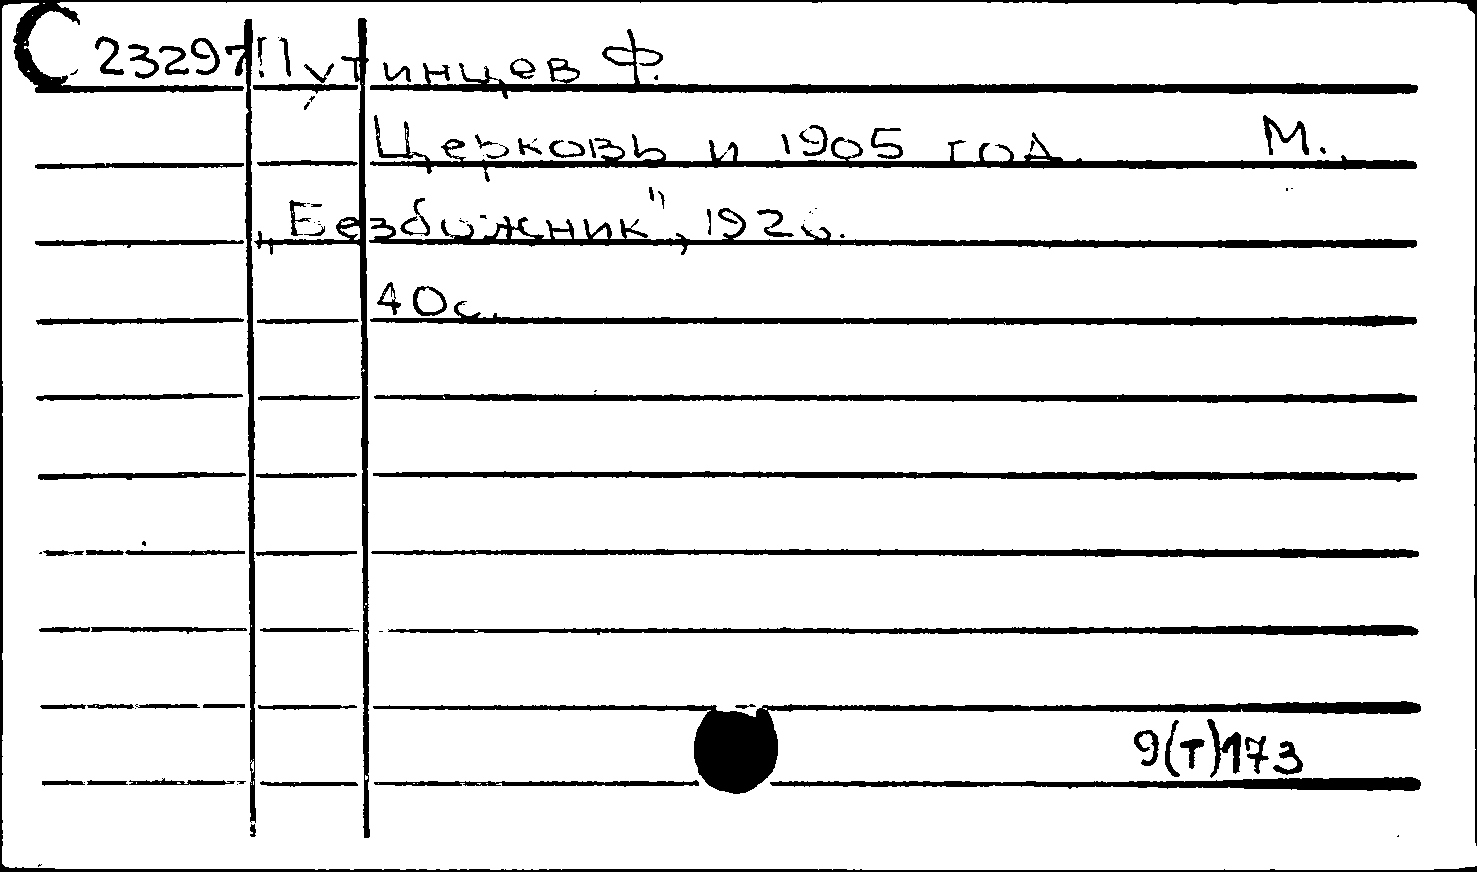 23297 Путинцев Ф.
Церковь и 1905 год. М.,
„Безбожник", 1926.
40с.
9(т)173